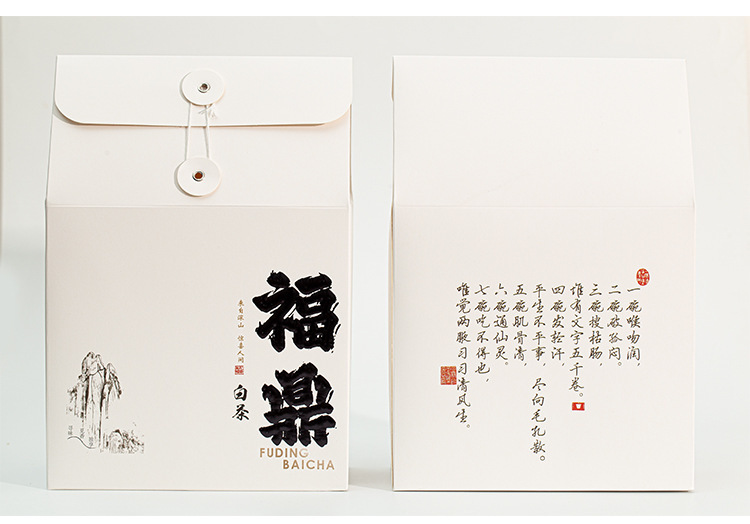 福鼎
来自深山 惊喜人间
白茶
FUDING
BAICHA
一碗喉吻润，
二碗破孤闷。
三碗搜枯肠，
惟有文字五千卷。
四碗发轻汗
平生不平事，尽向毛孔散。
五碗肌骨清，
六碗通仙灵。
七碗吃不得也，
唯觉两腋习习清风生。